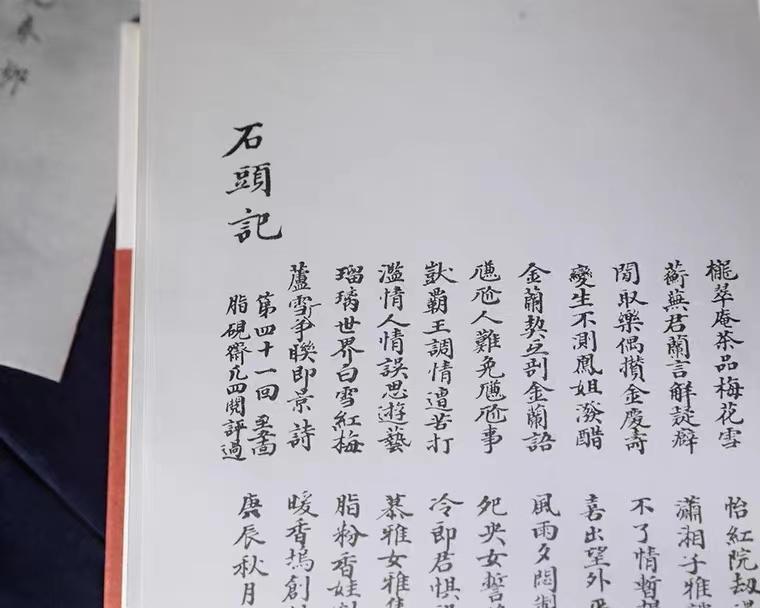 石頭記
櫳翠庵茶品梅花雪 怡紅院劫
蘅蕪君蘭言解疑癖 瀟湘子雅
閒取樂偶攢金慶壽 不了情暫
變生不測鳳姐潑醋 喜出望外
金蘭契互剖金蘭語 風雨夕悶制
尷尬人難免尷尬事 央女誓
獃霸王調情遭苦打 冷即君惧
濫情人情誤思遊藝 慕雅女雅集
瑠璃世界白雪紅梅 脂粉香娃
蘆雪爭聯即景詩 暖香塢創
第四十一回 至
脂硯齋凡四閱評過
庚辰秋月